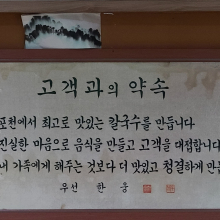 고객과의 약속
포천에서 최고로 맛있는 칼국수를 만듭니다
진실한 마음으로 음식을 만들고 고객을 대접합니다
내 가족에게 해주는 것보다 더 맛있고 청결하게 만듭
우선 한웅